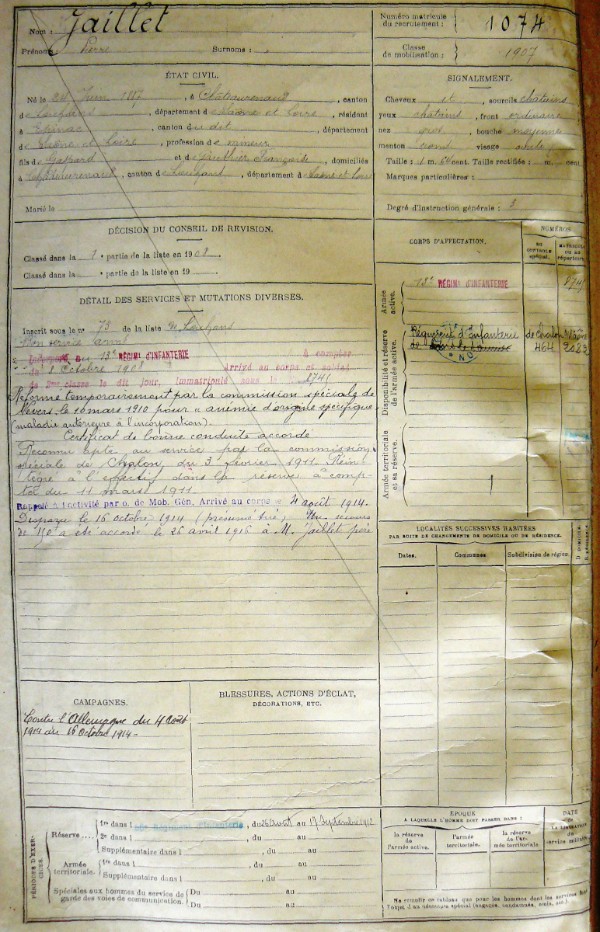 Nom : Jaillet
Prénoms : Pierre Surnoms :
Numéro matricule du recrutement : 1074
Classe de mobilisation : 1907
ÉTAT CIVIL.
Né le Juin à Châteaurenaud, canton
de Louhans, département de Saône et Loire, résidant
à Epinac, canton du dit, département
de Saône et Loire, profession de mineur
fils de et de domiciliés
à Châteaurenaud, canton de Louhans, département de Saône et Loire
Marié le
SIGNALEMENT.
Cheveux et sourcils châtains
yeux châtains, front ordinaire
nez gros, bouche moyenne
menton rond visage ovale
Taille : 1 m. cent. Taille rectifiée : m. cent.
Marques particulières :
Degré d'instruction générale : 3
DÉCISION DU CONSEIL DE REVISION.
Classé dans la 1e partie de la liste en 1908.
Classé dans la partie de la liste en 19
DÉTAIL DES SERVICES ET MUTATIONS DIVERSES.
Inscrit sous le no 73 de la liste de Louhans
Bon service armé
au 13e RÉGIM. D'INFANTERIE à compter
du 1 Octobre 1908 Arrivé au corps et soldat
de 2me classe le dit jour, immatriculé sous le no 5741
Réformé temporairement par la commission spéciale de
Nevers le 16 mars 1910 pour anémie d'origine spécifique
(maladie antérieure à l'incorporation)
Certificat de bonne conduite accordé
Reconnu apte au service par la commission
spéciale de Chalon, du 3 février 1911. Réin
tégré à l'effectif dans la réserve à comp
ter du 11 mars 1911.
Rappelé à l'activité par o. de Mob. Gén. Arrivé au corps le 4 août 1914.
Disparu le 16 octobre 1914 (présumé tué) Un secours
de 150f a été accordé le 26 avril 1916 à M. Jaillet père
CORPS D'AFFECTATION.
NUMÉROS
au contrôle spécial.
matricule ou au répertoire.
Armée active.
13e RÉGIM. D'INFANTERIE
5741
Disponibilité et réserve de l'armée active.
Régiment d'Infanterie de Chalon
464
Armée territoriale et sa réserve.
LOCALITÉS SUCCESSIVES HABITÉES
PAR SUITE DE CHANGEMENTS DE DOMICILE OU DE RÉSIDENCE.
Dates.
Communes.
Subdivision de région.
CAMPAGNES.
Contre l'Allemagne du 4 Août
1914 au 16 Octobre 1914.
BLESSURES, ACTIONS D'ÉCLAT,
DÉCORATIONS, ETC.
PÉRIODES D'EXERCICES.
Réserve
1re dans l Régiment d'Infanterie, du 26 Août au 17 Septembre 1912
2e dans l , du au
Supplémentaire dans l , du au
Armée territoriale.
1re dans l , du au
Supplémentaire dans l , du au
Spéciales aux hommes du service de
garde des voies de communication.
Du au
Du au
ÉPOQUE
A LAQUELLE L'HOMME DOIT PASSER DANS :
la réserve de l'armée active.
l'armée territoriale.
la réserve de l'armée territoriale
DATE